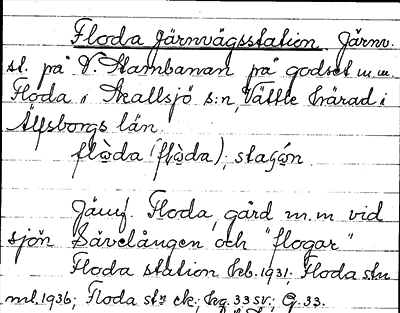 Floda järnvägsstation Järnv.
st. på V. Stambanan på godset m.m.
Floda i Skallsjö s:n, Vättle härad i
Älfsborgs län.
flὼda (flὼda), staʃώn.
Jämf. Floda, gård m.m vid
sjön Sävelången och "flogar"
Floda station hb. 1931; Floda stn
ml. 1936; Floda stn ek.; kg. 33 SV; G. 33.